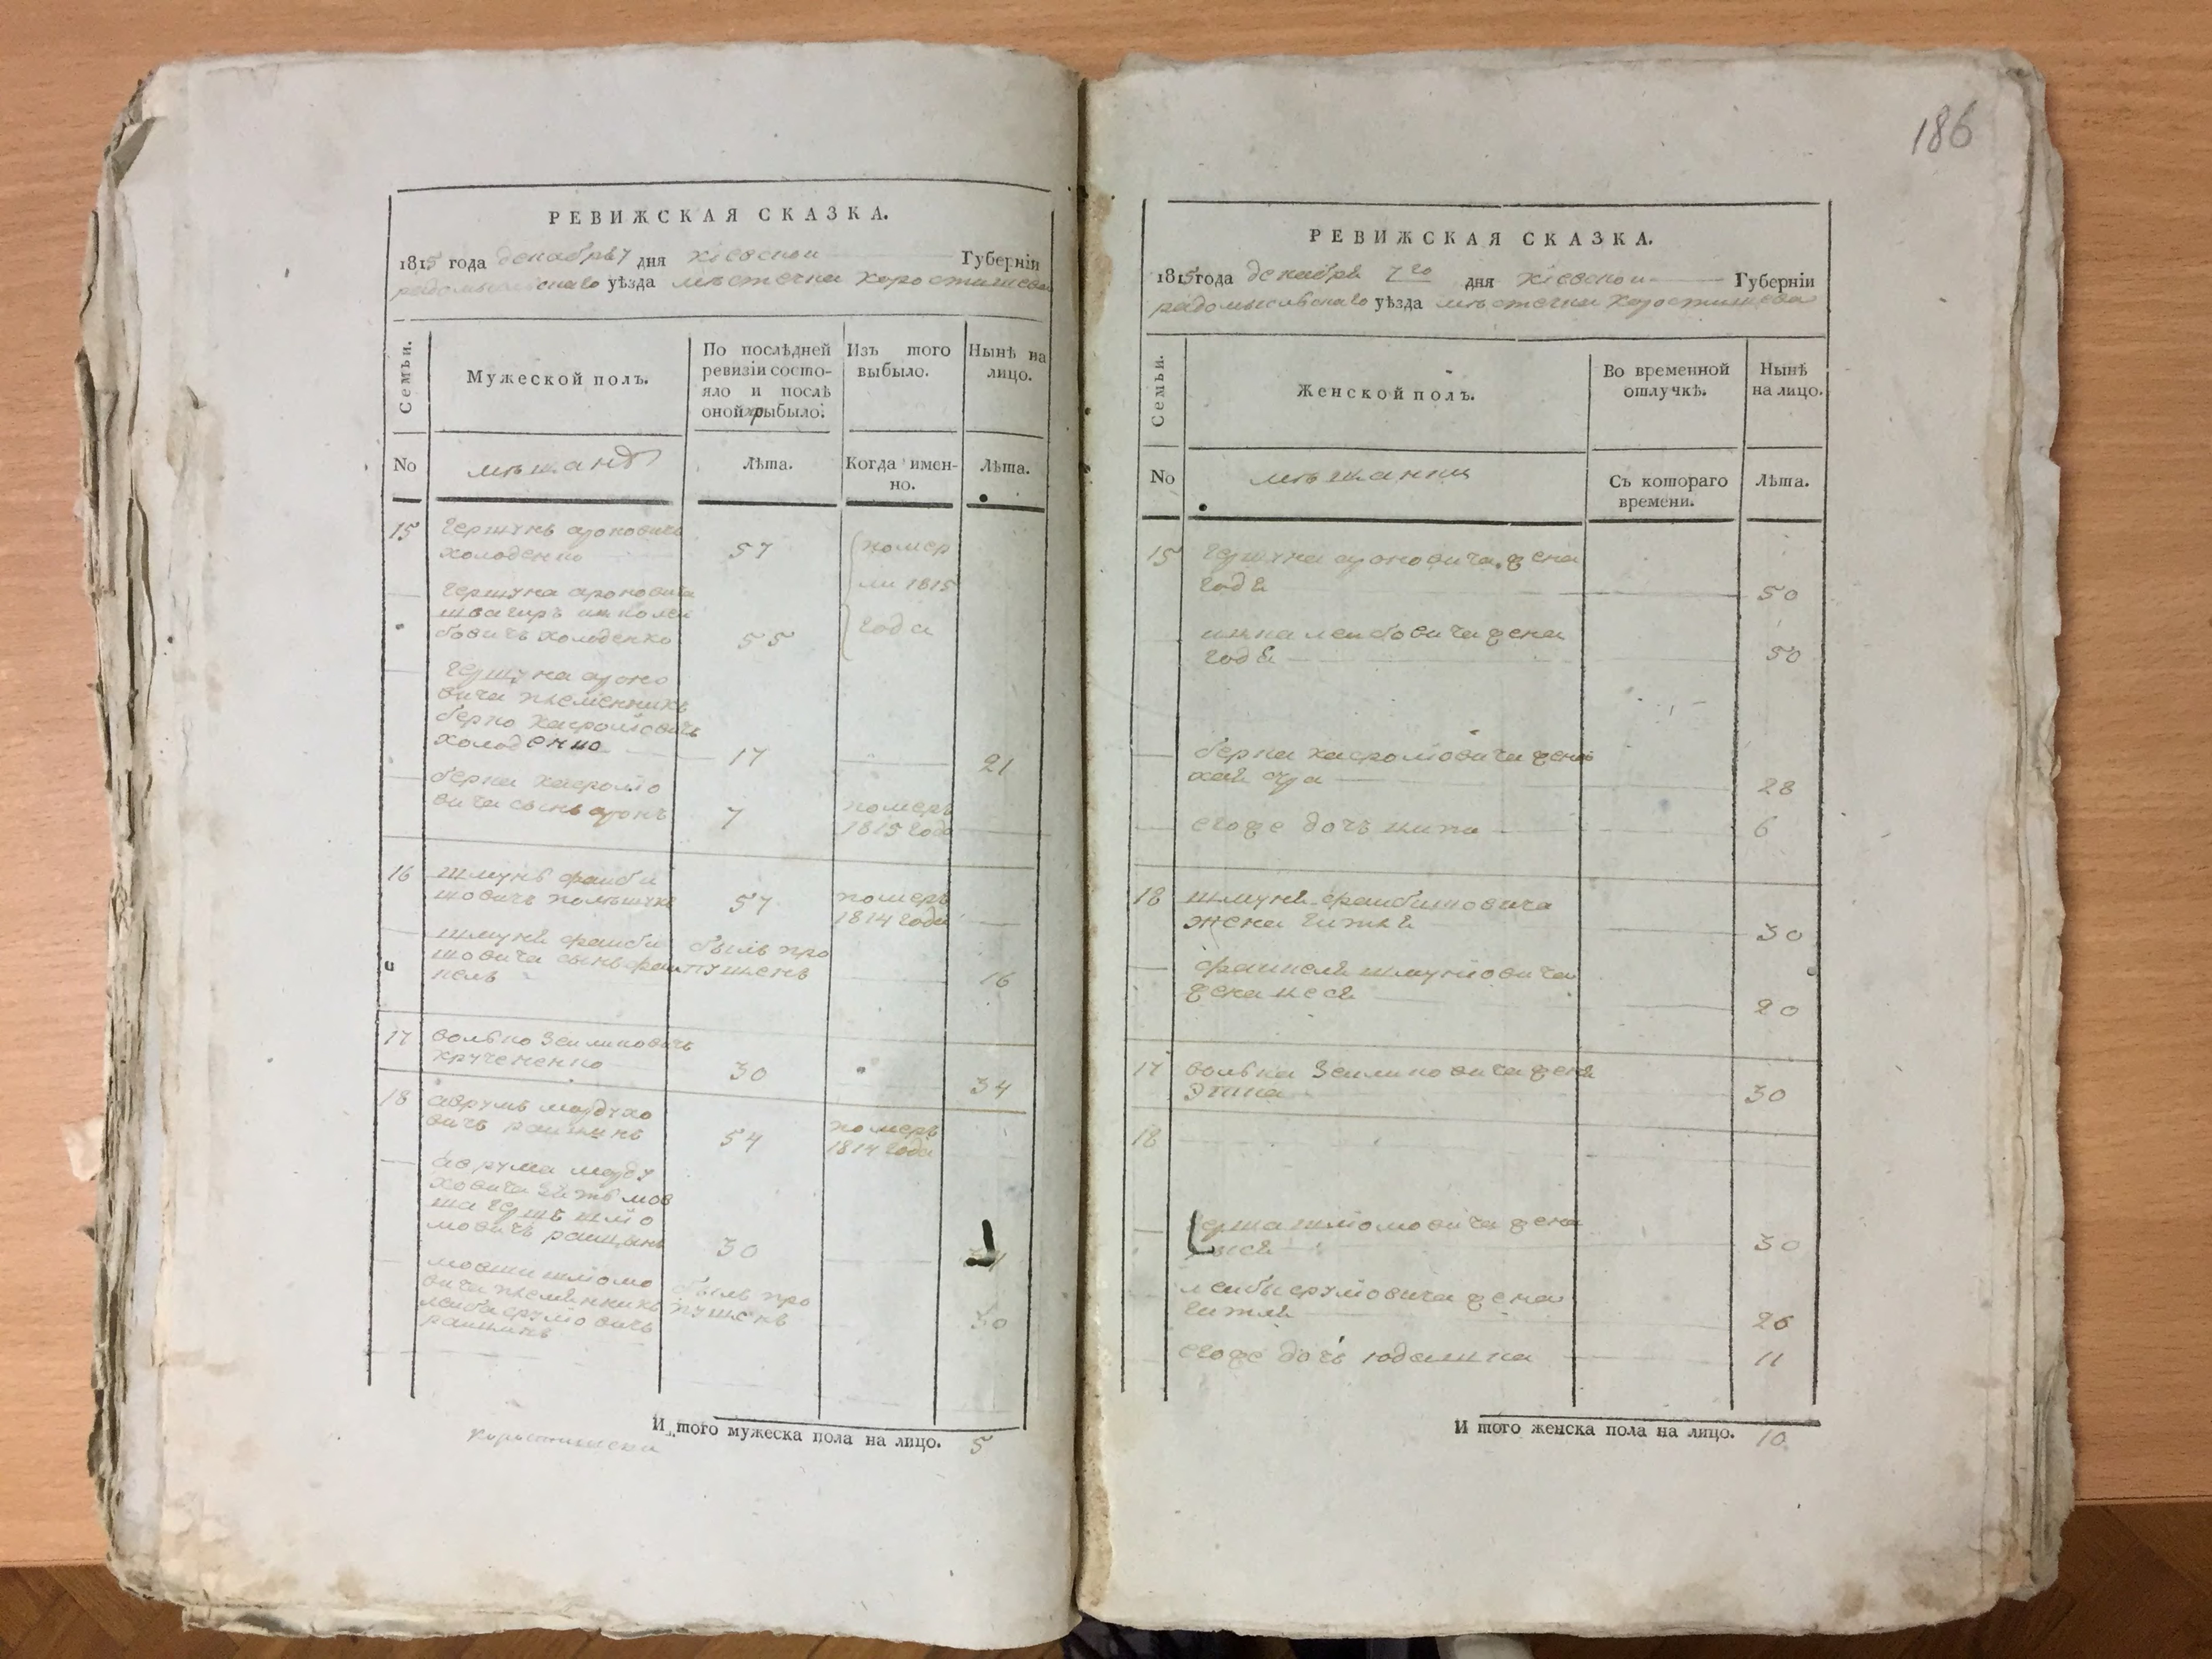 РЕВИЖСКАЯ СКАЗКА.
1815 года декабря 7 дня кіевской Губерніи
радомысльскаго уѣзда мѣстечка коростишева
Семьи.
Мужеской полъ.
По послѣдней
ревизіи состо-
яло и послѣ
оной прибыло.
Изъ того
выбыло.
Нынѣ на
лицо.
No
мѣщанѣ
Лѣта.
Когда имен-
но.
Лѣта.
15 гершунъ ароновичъ
холоденко 57 помер
ли 1815
года
гершуна ароновича
швагиръ ицко лей
бовичъ холоденко 55
гершуна ароно
вича племенникъ
берко хаскролїовичъ
холоденко 17 21
берка
вича сынъ аронъ 7 померъ
1815 года
16 шмунь файби
шовичъ 57 померъ
1814 года
шмуня файби былъ про
шовича сынъ фай пущенъ
16
17 волько Зейликовичъ
крученко 30 34
18 аврумъ мордухо
вичъ рашинъ 54 померъ
1814 года
аврума морду
ховича зять мов
ша гершъ шлїо
мовичъ 30
мовши шлїомо былъ про
вича племенникъ пущенъ
лейба срулїовичъ
рашинъ 30
И того мужеска пола на лицо. 5
коростишева
186
РЕВИЖСКАЯ СКАЗКА.
1815 года декабря 7го дня кіевской Губерніи
радомысльскаго уѣзда мѣстечка коростишева
Семьи.
Женской полъ.
Во временной
отлучкѣ.
Нынѣ
на лицо.
No
мѣщанки
Съ котораго
времени.
Лѣта.
15 гершуна ароновича жена
годя 50
ицка лейбовича жена
годя 50
берка жена
28
егоже дочь 6
18 шмуня файбишовича
жена гитля 30
шмунїовича
жена нося 20
17 волька Зейликовича жена
Этка 30
18
герша шлїомовича жена
30
лейбы срулїовича жена
гитля 26
егоже дочь 11
И того женска пола на лицо. 10